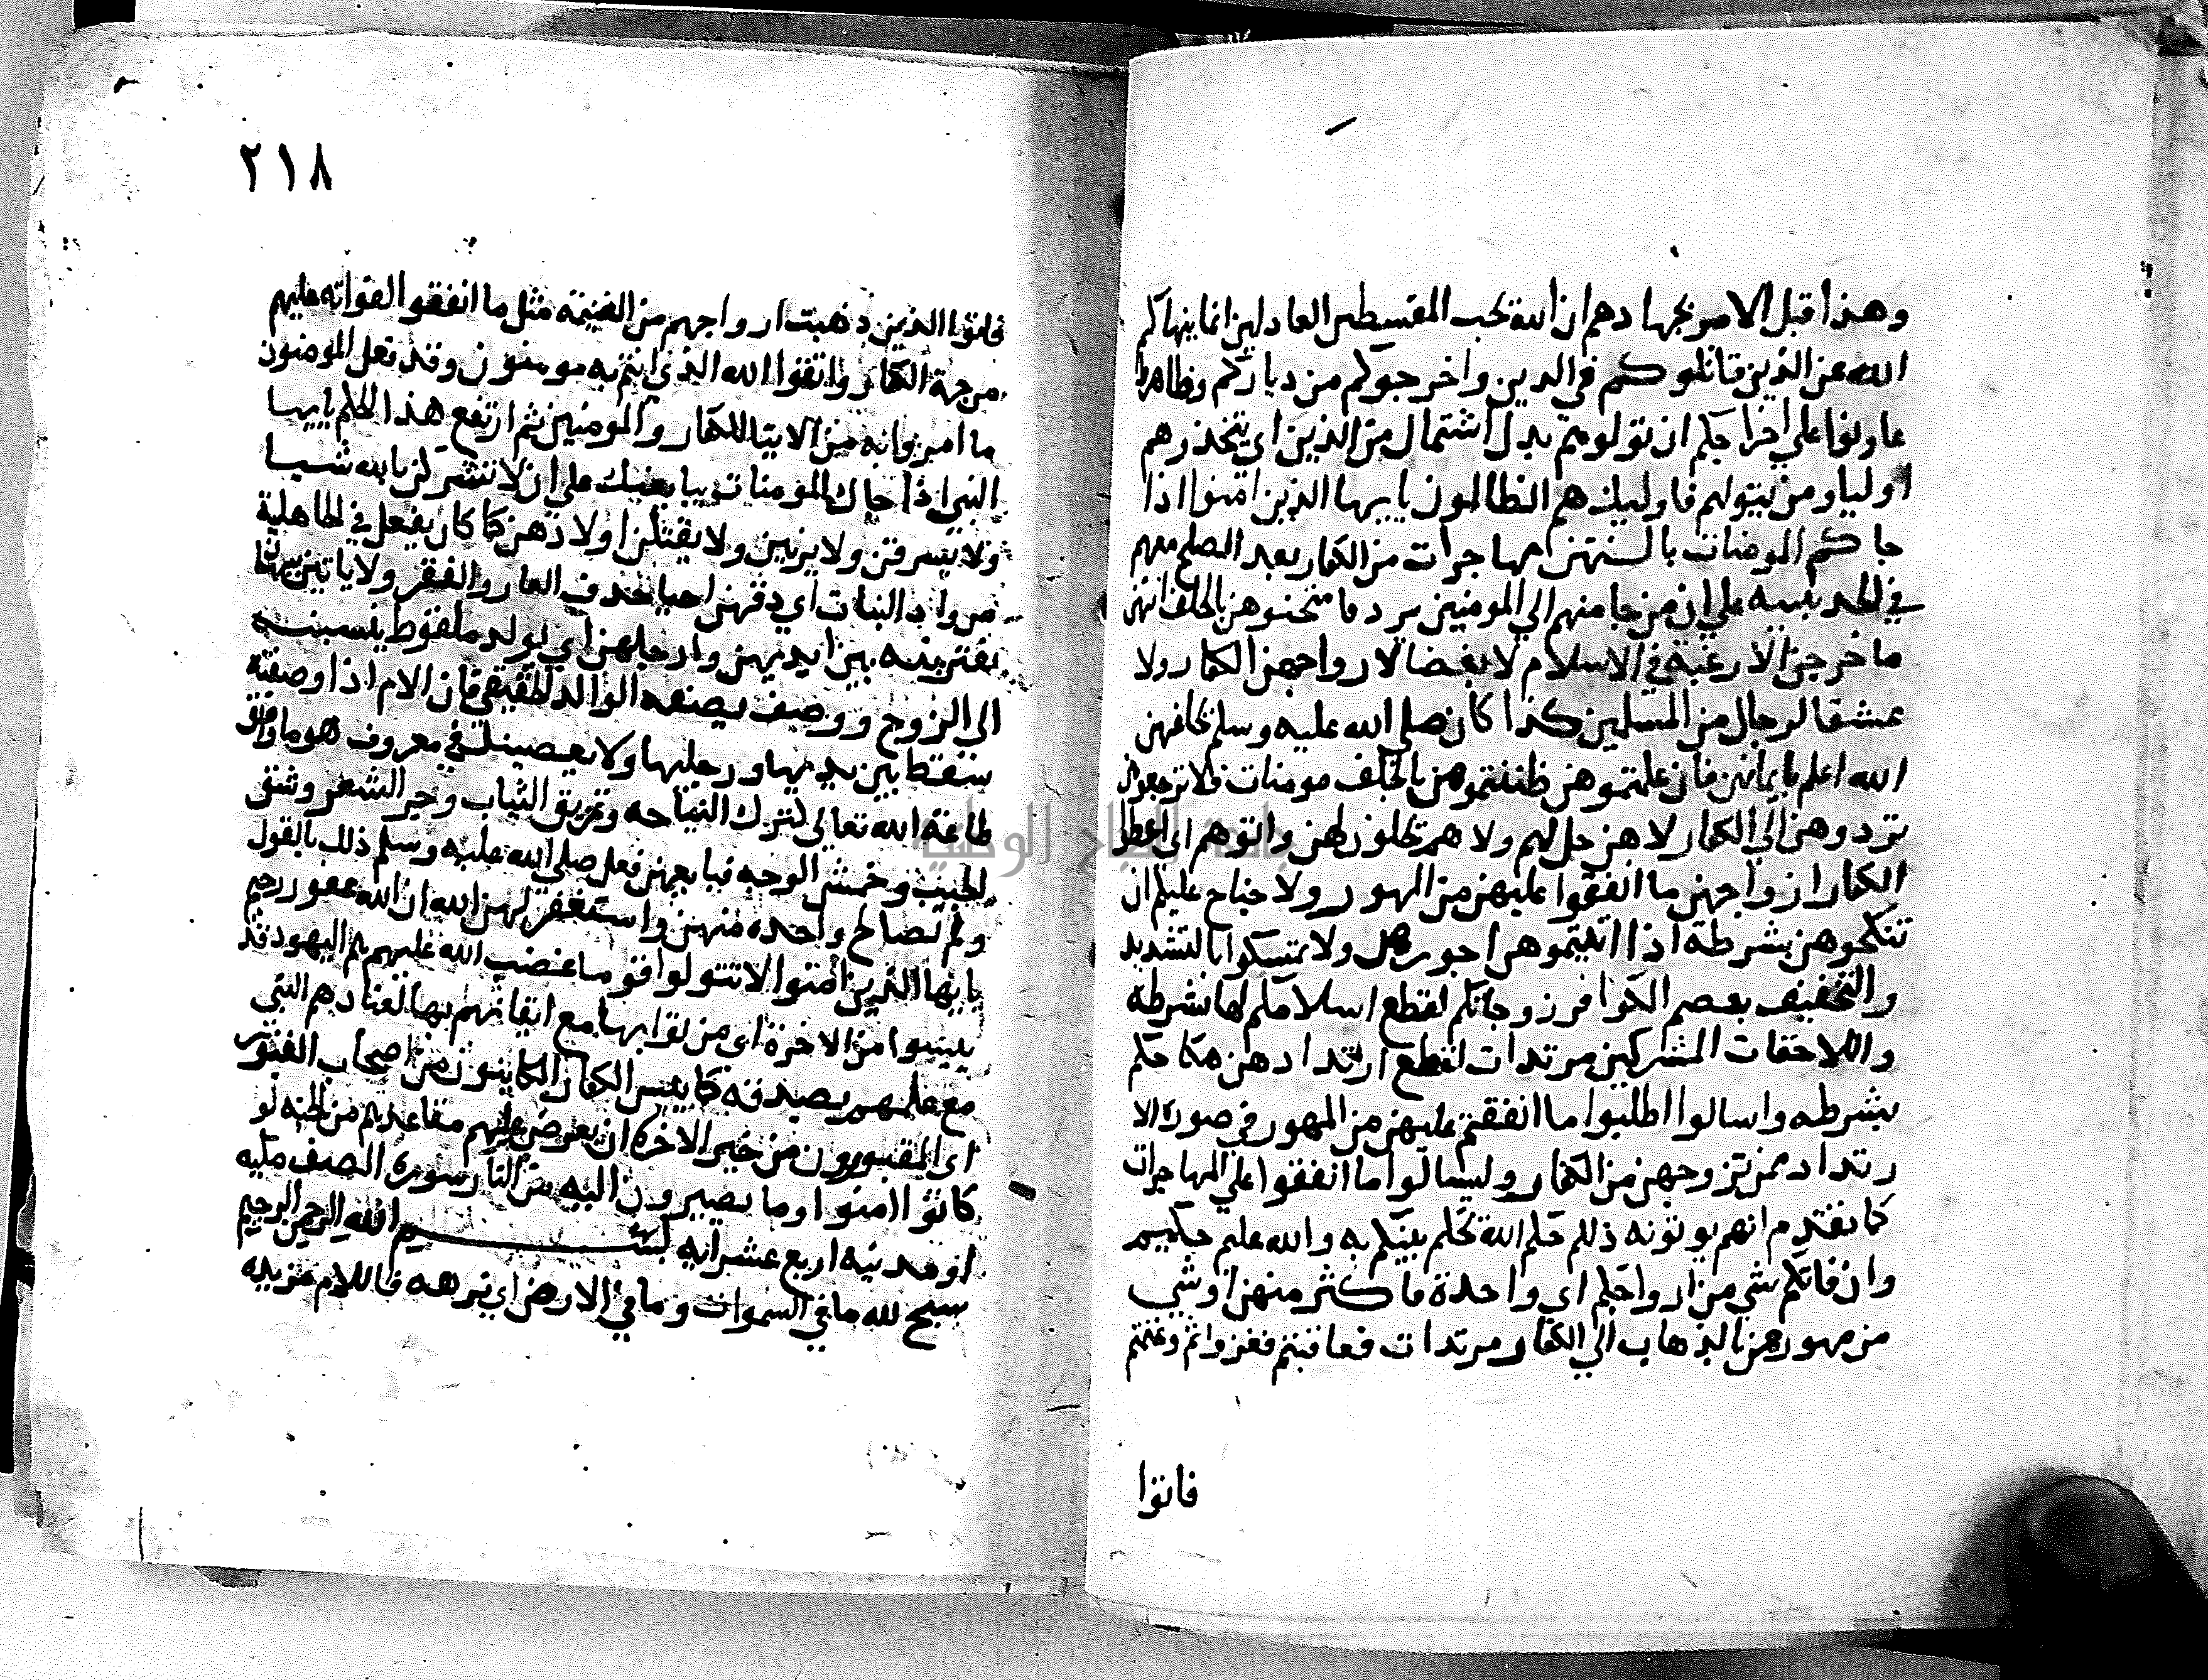 وهذا قبل الامر بجهادهم ان الله يحب المقسطين العادلين انما ينهاكم
الله عن الذين قاتلوكم في الدين واخرجوكم من دياركم وظاهروا
عاونوا علي اخراجكم ان تولوهم بدل اشتمال من الذين اي يتخذوهم
اوليا ومن يتولهم فاوليك هم الظالمون يايها الذين امنوا اذا
جاكم المومنات بالسنتهن مهاجرات من الكفار بعد الصلح معهم
في الحديبيه علي ان من جا منهم الي المومنين يرد فامتحنوهن بالحلف انهن
ما خرجن الا رغبة في الاسلام لا بغضا لازواجهن الكفار ولا
عشقا لرجال من المسلمين كذا كان صلي الله عليه وسلم يحلفهن
الله اعلم بايمانهن فان علمتموهن ظننتموهن بالحلف مومنات فلا ترجعوهن
تردوهن الي الكفار لا هن حل لهم ولا هم يحلون لهن واتوهم اي اعطوا
الكفار ازواجهن ما انفقوا عليهن من المهور ولا جناح عليكم ان
تنكحوهن بشرطه اذا اتيتموهن اجورهن ولا تمسكوا بالتشديد
والتخفيف بعصم الكوافر زوجاتكم لقطع اسلامكم لها بشرطه
واللاحقات المشركين مرتدات لقطع ارتدادهن نكاحكم
بشرطه واسالوا اطلبوا ما انفقتم عليهن من المهور في صورة الا
رتداد ممن تزوجهن من الكفار وليسالوا ما انفقوا علي المهاجرات
كما تقدم انهم يوتونه ذلكم حكم الله يحكم بينكم به والله عليم حكيم
وان فاتكم شي من ازواجكم اي واحدة فاكثر منهن او شي
من مهورهن بالذهاب الي الكفار مرتدات فعاقبتم فغزوتم وغنمتم
فاتوا
٢١٨
فاتوا الذين ذهبت ازواجهم من الغنيمة مثل ما انفقوا لفواته عليهم
من جهة الكفار واتقوا الله الذي انتم به مومنون وقد فعل المومنون
ما امروا به من الايتا للكفار والمومنين ثم ارتفع هذا الحكم يايها
النبي اذا جاك المومنات يبايعنك علي ان لا يشركن بالله شيا
ولا يسرقن ولا يزنين ولا يقتلن اولادهن كما كان يفعل في الجاهلية
من واد البنات اي دفنهن احيا خوف العار والفقر ولا ياتين ببهتان
يفترينه بين ايديهن وارجلهن اي بولد ملقوط ينسبنه
الي الزوج ووصف بصفه الوالد الحقيقي فان الام اذا وضعته
سقط بين يديها ورجليها ولا يعصينك في معروف هو ما وافق
طاعة الله تعالي كترك النياحه وتمزيق الثياب وجز الشعر وشق
الجيب وخمش الوجه فبايعهن فعل صلي الله عليه وسلم ذلك بالقول
ولم يصالح واحده منهن واستغفر لهن الله ان الله غفور رحيم
يايها الذين امنوا لا تتولوا قوما غضب الله عليهم هم اليهود قد
ييسوا من الاخرة اي من ثوابها مع ايقانهم بها لعنادهم النبي
مع علمهم بصدقه كما ييس الكفار الكاينون من اصحاب القبور
اي المقبورون من خير الاخرة ان تعرض عليهم مقاعدهم من الجنه لو
كانوا امنوا وما يصيرون اليه من النار سورة الصف مكيه
او مدنيه اربع عشر ايه بسم الله الرحمن الرحيم
سبح لله ما في السموات وما في الارض اي نزهه فاللام مزيده